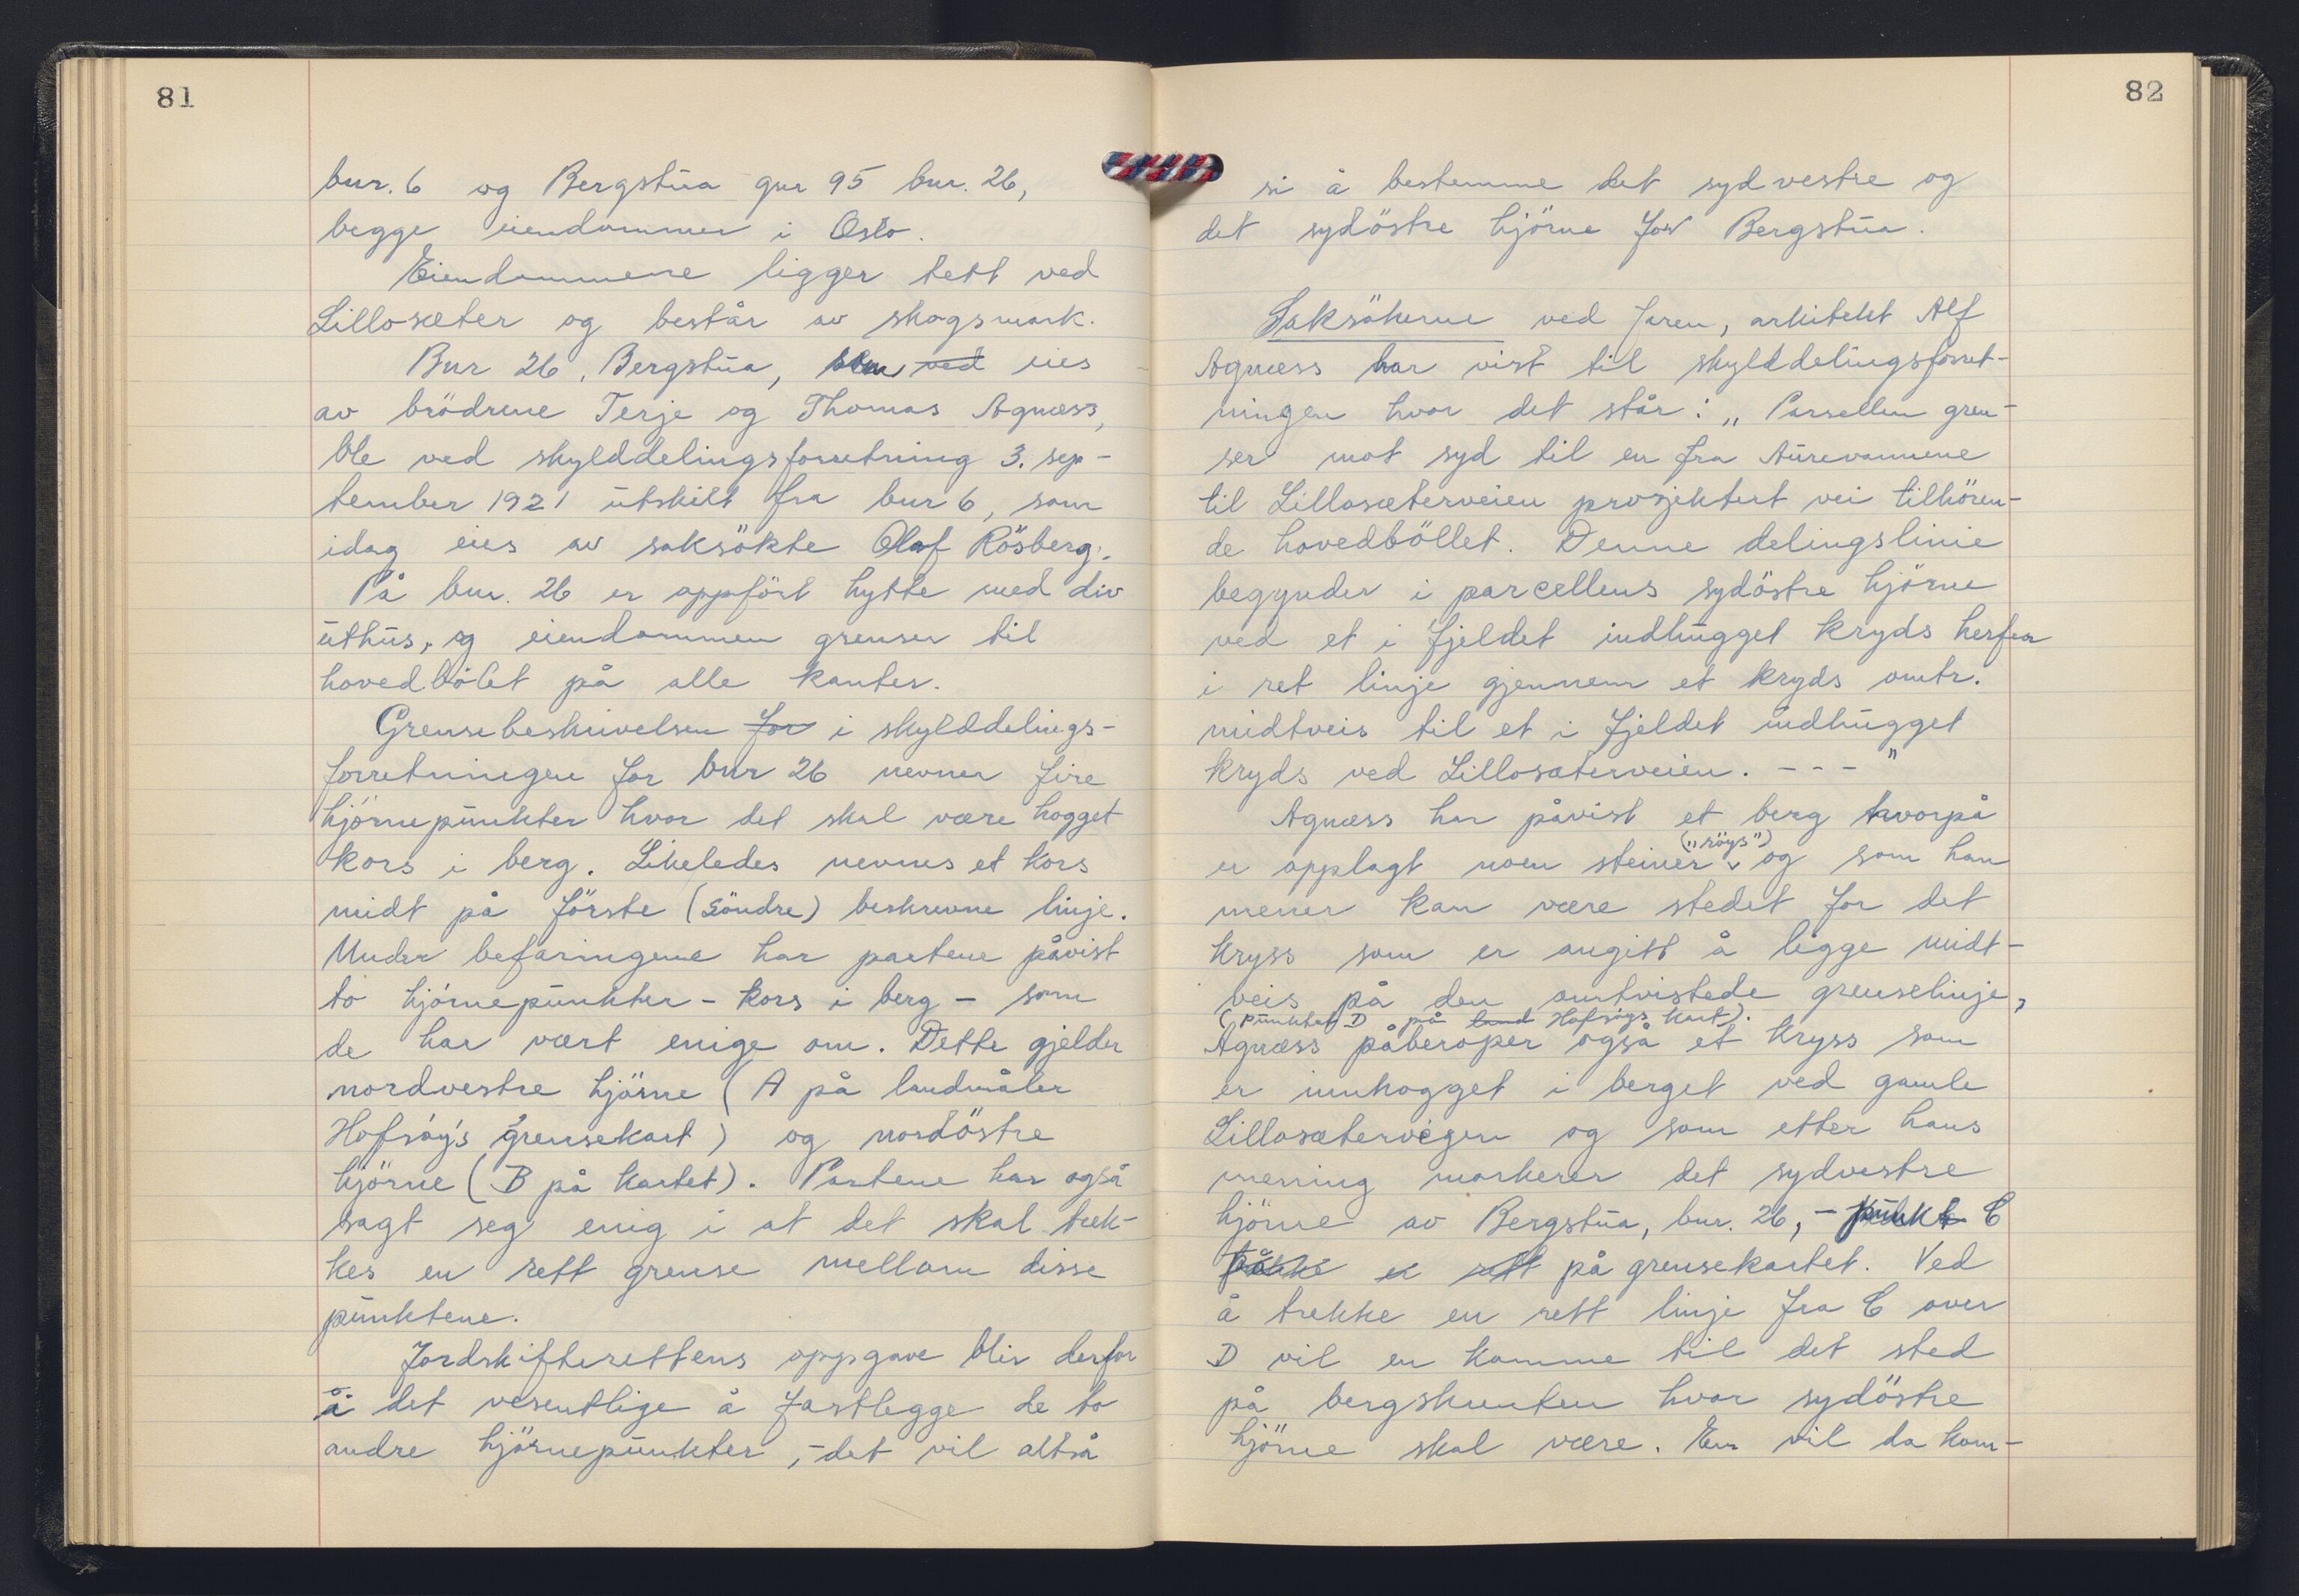 81
bnr. 6 og Bergstua gnr 95 bnr. 26,
begge eiendommer i Oslo.
Eiendommene ligger tett ved
Lillosæter og består av skogsmark.
Bnr 26, Bergstua, som ved eies
av brödrene Terje og Thomas Agnæss,
ble ved skylddelingsforretning 3. sep-
tember 1921 utskilt fra bnr 6, som
idag eies av saksökte Olaf Rösberg.
På bnr. 26 er oppfört hytte med div
uthus, og eiendommen grenser til
hovedbölet på alle kanter.
Grensebeskrivelsen for i skylddelings-
forretningen for bnr 26 nevner fire
hjörnepunkter hvor det skal være hogget
kors i berg. Likeledes nevnes et kors
midt på förste (söndre) beskrevne linje.
Under befaringene har partene påvist
to hjörnepunkter - kors i berg - som
de har vært enige om. Dette gjelder
nordvestre hjörne (A på landmåler
Hofsöy's grensekart) og nordöstre
hjörne (B på kartet). Partene har også
sagt seg enig i at det skal trek-
kes en rett grense mellom disse
punktene.
Jordskifterettens oppgave blir derfor
i det vesentlige å fastlegge de to
andre hjörnepunkter, - det vil altså
82
si å bestemme det sydvestre og
det sydöstre hjörne for Bergstua.
Saksökerne ved faren, arkitekt Alf
Agnæss har vist til skylddelingsforret-
ningen hvor det står: „Parsellen gren-
ser mot syd til en fra Aurevannene
til Lillosæterveien prosjektert vei tilhören-
de hovedböllet. Denne delingslinie
begynder i parcellens sydöstre hjörne
ved et i fjeldet indhugget kryds herfra
i ret linje gjennem et kryds omtr.
midtveis til et i fjeldet indhugget
kryds ved Lillosæterveien. - - - "
Agnæss har påvist et berg hvorpå
er opplagt noen steiner („röys") og som han
mener kan være stedet for det
kryss som er angitt å ligge midt-
veis på den omtvistede grenselinje,
(punktet D på land Hofsöys kart).
Agnæss påberoper også et kryss som
er innhogget i berget ved gamle
Lillosætervegen og som etter hans
mening markerer det sydvestre
hjörne av Bergstua, bnr. 26, - punkt C
på grensekartet. Ved
å trekke en rett linje fra C over
D vil en komme til det sted
på bergskrenten hvor sydöstre
hjörne skal være. En vil da kom-